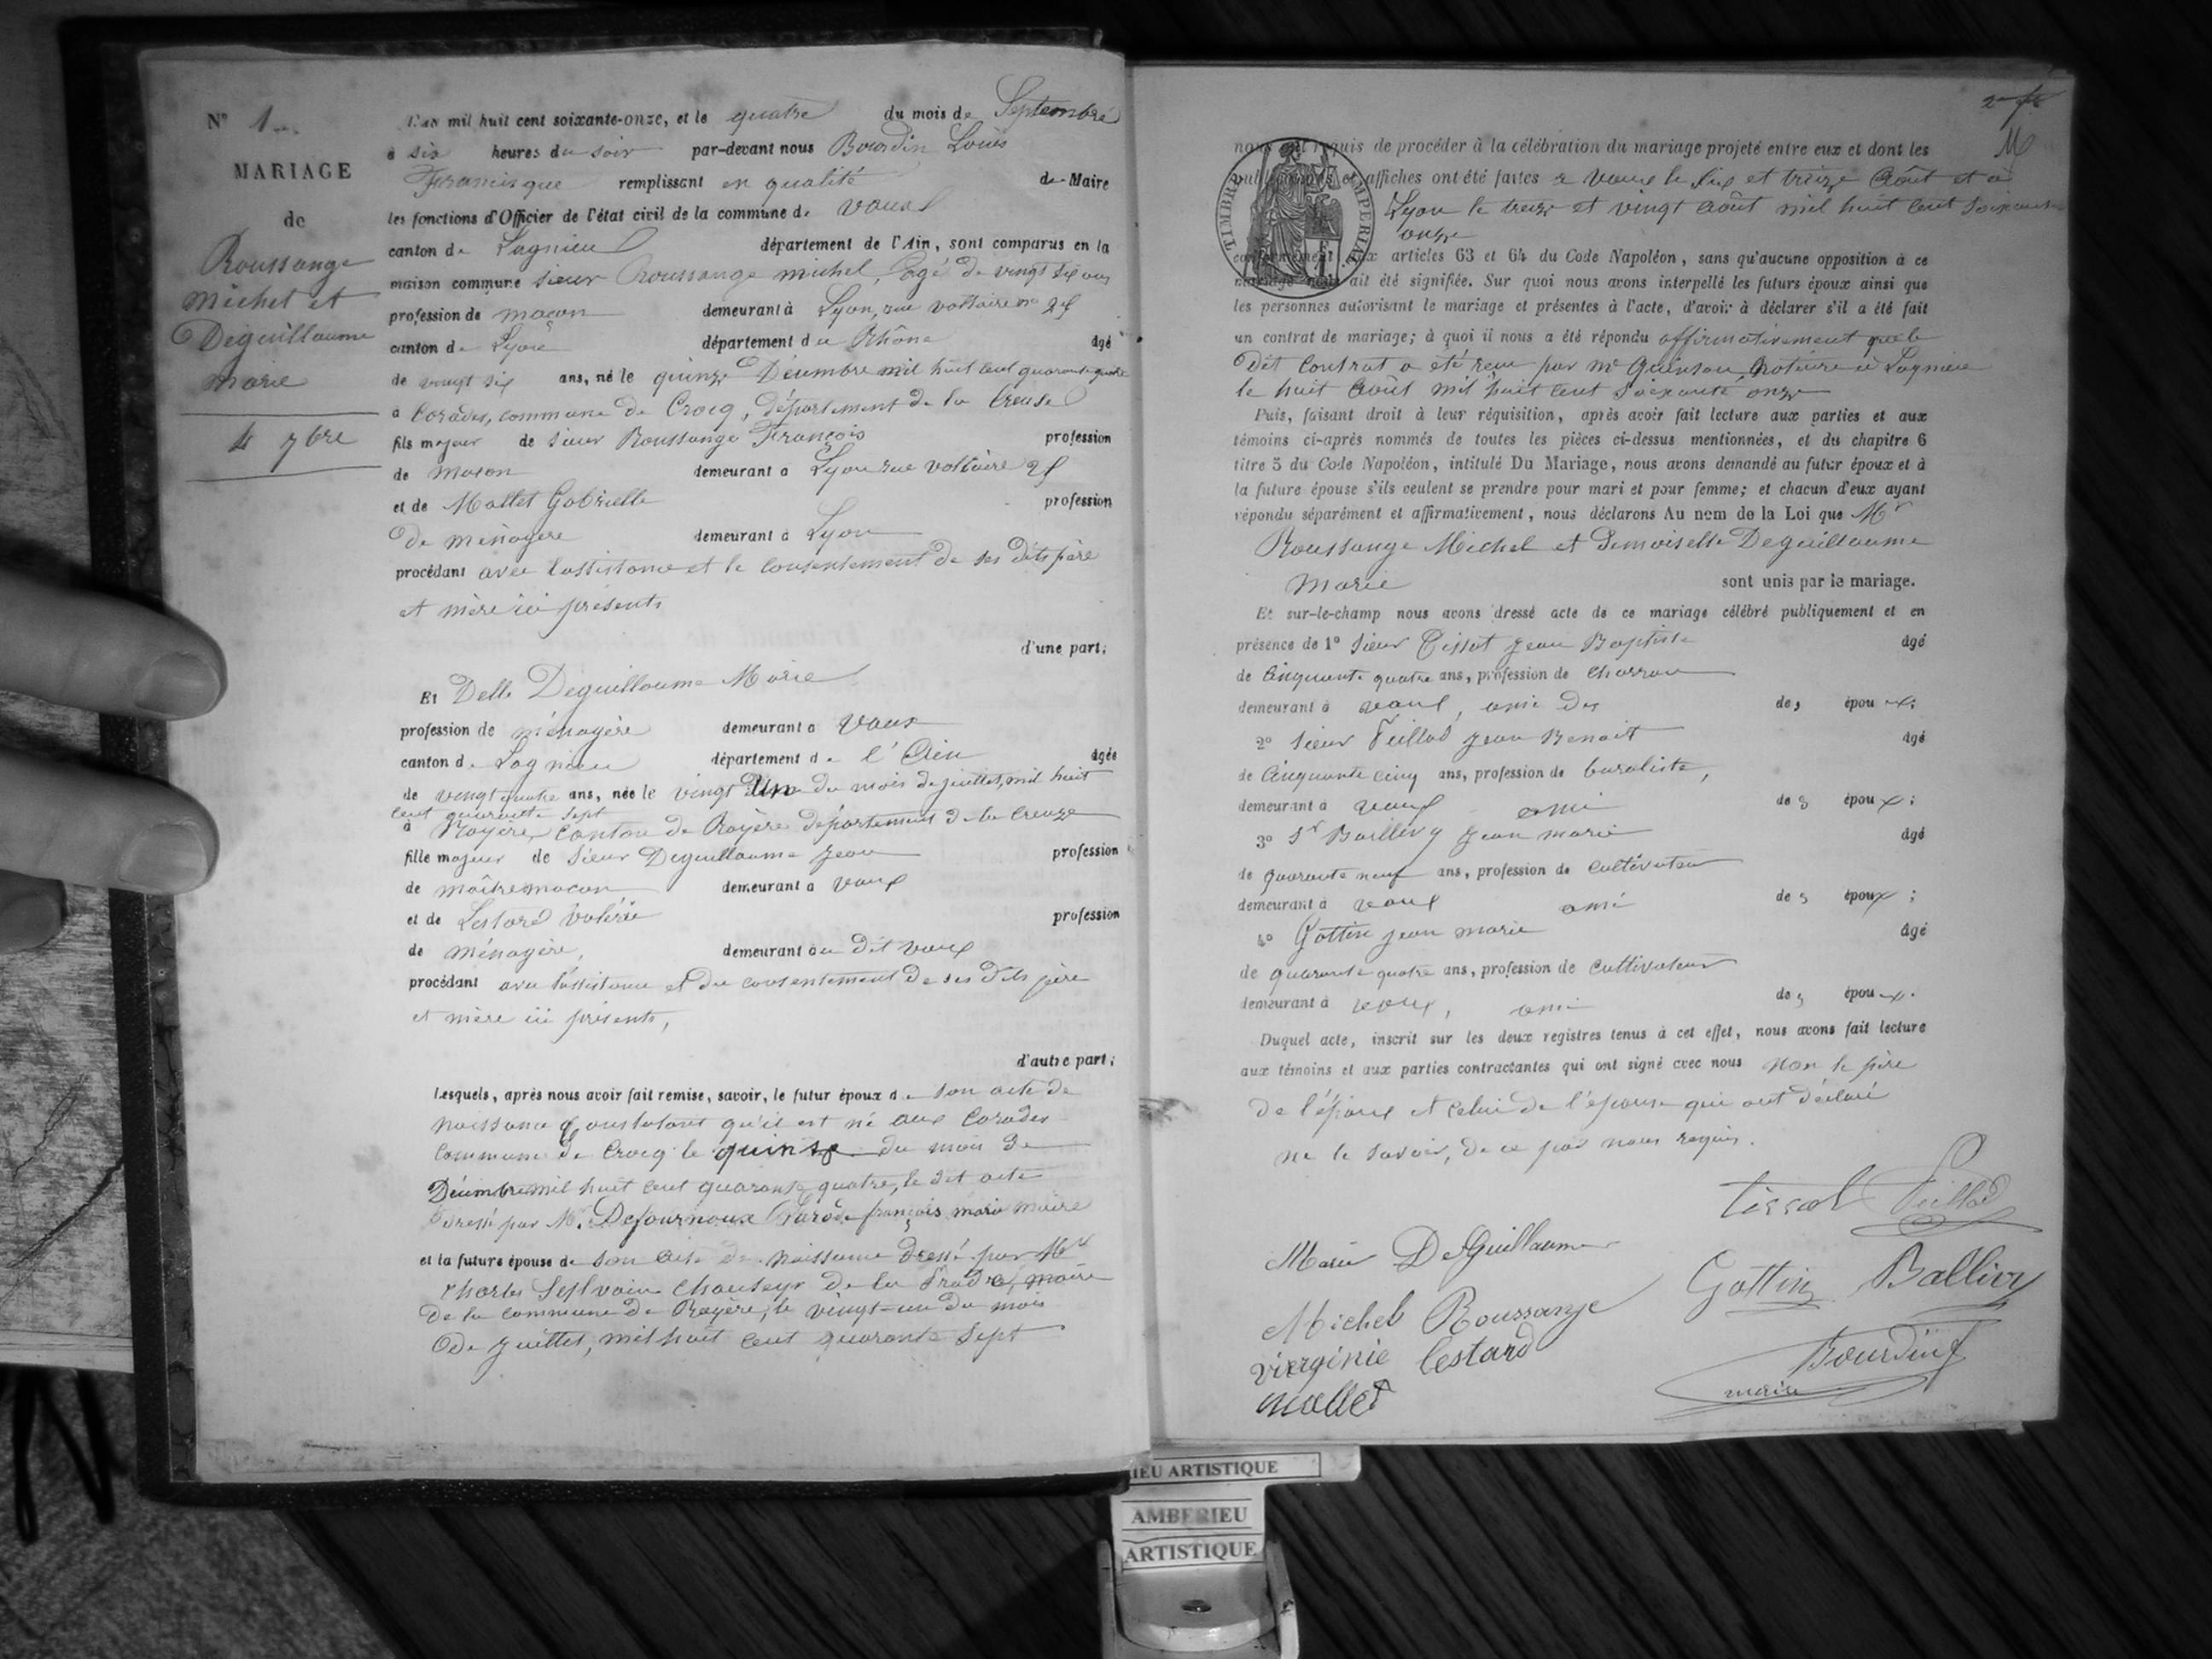 N° 1
MARIAGE
de
Roussange
Michel et
Deguillaume
Marie
4 7bre
L'an mil huit cent soixante-onze, et le quatre du mois de Septembre
à six heures du soir par-devant nous Bourdin Louis
Francisque remplissant en qualité de Maire
les fonctions d'Officier de l'état civil de la commune de Vaux
canton de Lagnieu département de l'Ain, sont comparus en la
maison commune sieur Roussange michel, âgé de vingt six ans
profession de maçon demeurant à Lyon, rue voltaire n° 25
canton de Lyon département du Rhône âgé
de vingt six ans, né le quinze Décembre mil huit cent quarante quatre
à Corades, commune de Crocq, département de la Creuse
fils majeur de sieur Roussange François profession
de maçon demeurant à Lyon rue voltaire 25
et de Mallet Gabrielle profession
de ménagère demeurant à Lyon
procédant avec l'assistance et le consentement de ses dits père
et mère ici présents
d'une part;
Et Delle Deguillaume Marie
profession de ménagère demeurant à Vaux
canton de Lagnieu département de l'Ain âgée
de vingt quatre ans, née le vingt Un du mois de juillet, mil huit
cent quarante sept
à Royère, canton de Royère département de la Creuze
fille majeur de sieur Deguillaume Jean profession
de maître maçon demeurant à vaux
et de Lestard valérie profession
de ménagère, demeurant au dit vaux
procédant avec l'assistance et du consentement de ses dits père
et mère ici présents,
d'autre part;
Lesquels, après nous avoir fait remise, savoir, le futur époux de son acte de
naissance Constatant qu'il est né aux Corades
commune de Crocq le quinze du mois de
Décembre mil huit cent quarante quatre, le dit acte
dressé par Mr. Defournoux françois marie maire
et la future épouse de son acte de naissance dressé par Mr
Charles Sylvain Chauseyr de la Prade, maire
de la commune de Royère, le vingt-un du mois
de juillet, mil huit cent quarante sept
M
nous ont requis de procéder à la célébration du mariage projeté entre eux et dont les
publications et affiches ont été faites à Vaux le six et treize Août et à
Lyon le treize et vingt août mil huit cent soixante
onze
TIMBRE IMPERIAL
conformément aux articles 63 et 64 du Code Napoléon, sans qu'aucune opposition à ce
mariage nous ait été signifiée. Sur quoi nous avons interpellé les futurs époux ainsi que
les personnes autorisant le mariage et présentes à l'acte, d'avoir à déclarer s'il a été fait
un contrat de mariage; à quoi il nous a été répondu affirmativement que le
dit contrat a été reçu par Me Quinson, Notaire à Lagnieu
le huit Août mil huit cent soixante onze
Puis, faisant droit à leur réquisition, après avoir fait lecture aux parties et aux
témoins ci-après nommés de toutes les pièces ci-dessus mentionnées, et du chapitre 6
titre 5 du Code Napoléon, intitulé Du Mariage, nous avons demandé au futur époux et à
la future épouse s'ils veulent se prendre pour mari et pour femme; et chacun d'eux ayant
répondu séparément et affirmativement, nous déclarons Au nom de la Loi que Mr
Roussange Michel et Demoiselle Deguillaume
Marie sont unis par le mariage.
Et sur-le-champ nous avons dressé acte de ce mariage célébré publiquement et en
présence de 1° sieur Tissot Jean Baptiste âgé
de Cinquante quatre ans, profession de charron
demeurant à vaux, ami des des époux;
2° sieur Veillod Jean Benoit âgé
de Cinquante cinq ans, profession de buraliste,
demeurant à vaux ami des époux;
3° Sr Baillivy Jean marie âgé
de quarante neuf ans, profession de cultivateur
demeurant à vaux ami des époux;
4° Gottin Jean marie âgé
de quarante quatre ans, profession de cultivateur
demeurant à vaux, ami des époux.
Duquel acte, inscrit sur les deux registres tenus à cet effet, nous avons fait lecture
aux témoins et aux parties contractantes qui ont signé avec nous Non le père
de l'époux et celui de l'épouse qui ont déclaré
ne le savoir, de ce par nous requis.
Tissot Veillod
Marie DeGuillaume
Gottin Ballivy
Michel Roussange
virginie lestard
Bourdin f
mallet
maire
IEU ARTISTIQUE
AMBERIEU
ARTISTIQUE